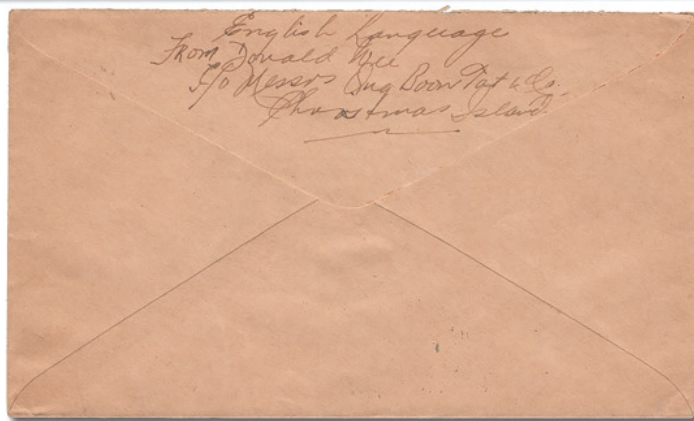 English Language
From Donald Wee
c/o Messrs Ong Boon Tat & Co.
Christmas Island